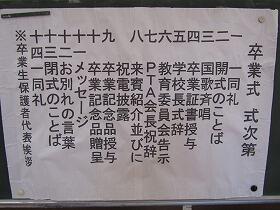 卒業式 式次第
一 一同礼
二 開式のことば
三 国歌斉唱
四 卒業証書授与
五 学校長式辞
六 教育委員会告示
七 PTA会長祝辞
八 来賓紹介並びに
祝電披露
九 卒業記念品授与
十 卒業記念品贈呈
十一 メッセージ
十二 お別れの言葉
十三 閉式のことば
十四 一同礼
※卒業生保護者代表挨拶